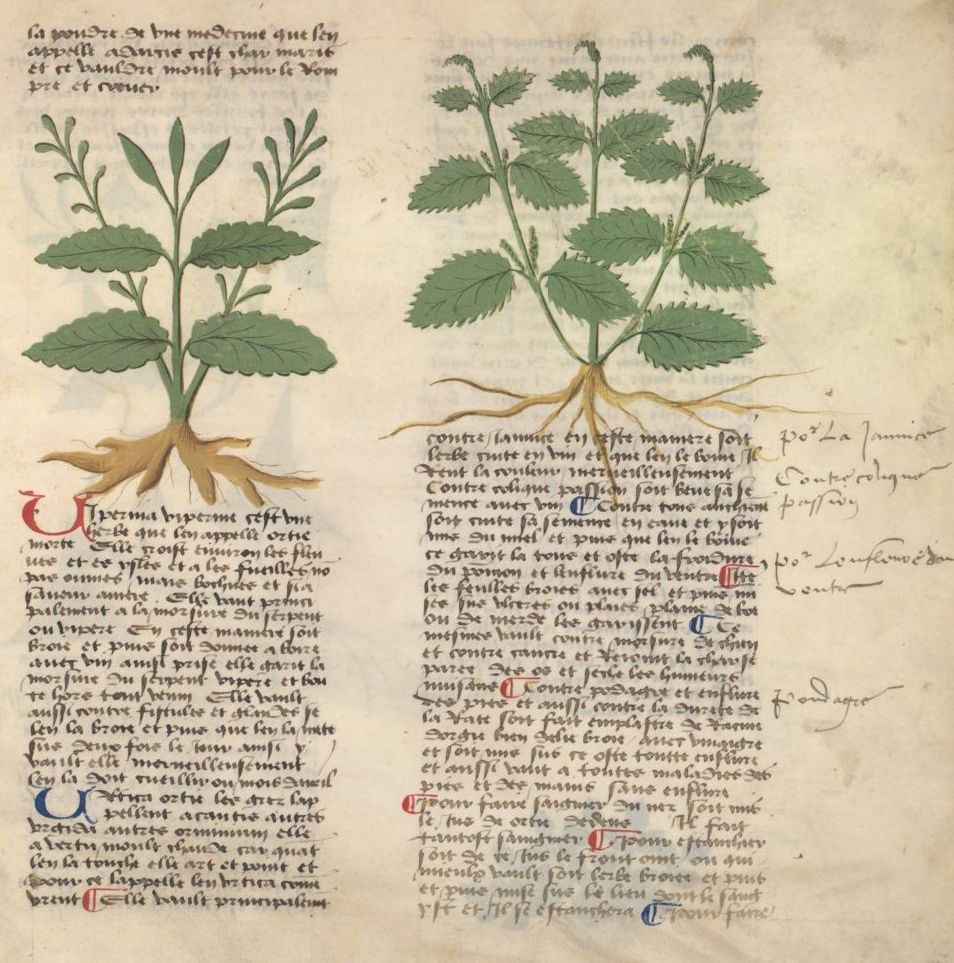 la poudre de une medecine que len
appelle adarcis cest char marit
et ce vauldre moult pour le rom
pre et crever
Uiperina viperine cest une
herbe que len appelle ortie
morte Elle croist environ les fleu
ves et es ysles et a les fueilles no
pas ounies mais bochues et si a
saveur amere Elle vault princi
palement a la morsure du serpent
ou vipere En ceste maniere soit
broie et puis soit donnee a boire
avec vin ainsi prise elle garit la
morsure du serpent vipere et bou
te hors tout venin Elle vault
aussi contre fistules et glandes se
len la broie et puis que len la mete
sus deux fois le jour ainsi y
vault elle merveilleusement
len la doit cueillir ou mois davril
Urtica ortie les grez lap
pellent acantis autres
urgida autres orminum elle
a vertu moult chaude car quat
len la touche elle art et point et
pour ce lappelle len urtica come
urent Elle vault principalemt
contre jaunice en ceste maniere soit
lerbe cuite en vin et que len le boive Il
rent la couleur merveilleusement
Contre colique passion soit beue sa se
mence avec vin Contre toux anchiene
soit cuite sa semence en eaue et y soit
mis du miel et puis que len le boive
ce garit la toux et oste la froidure
du pomon et lenflure du ventre Ite
les feuilles broies avec sel et puis mi
ses sus ulceres ou plaies plaine de boe
ou de merde les garissent Ce
mesmes vault contre morsure de chien
et contre cancre et rejoint la char se
paree des os et seche les humeurs
Contre podagre et enflure
des pies et aussi contre la durete de
la rate soit fait emplastre de racine
dorgie bien delie broie avec vinaigre
et soit mis sus ce oste toutte enflure
et aussi vaut a toutes maladies des
pies et des mains sans enflure
Pour faire saigner du nez soit mis
le jus de ortie dedens Il fait
tantost sainguier Pour estanchier
soit de ce jus le front oint ou qui
mieulx vault soit lerbe broiee et puis
et puis mise sus le lieu dont le sang
yst et Il se estanchera Pour faire
por La Jaunice
Contre colique
passion
por Lenfleure du
ventre
Podagre